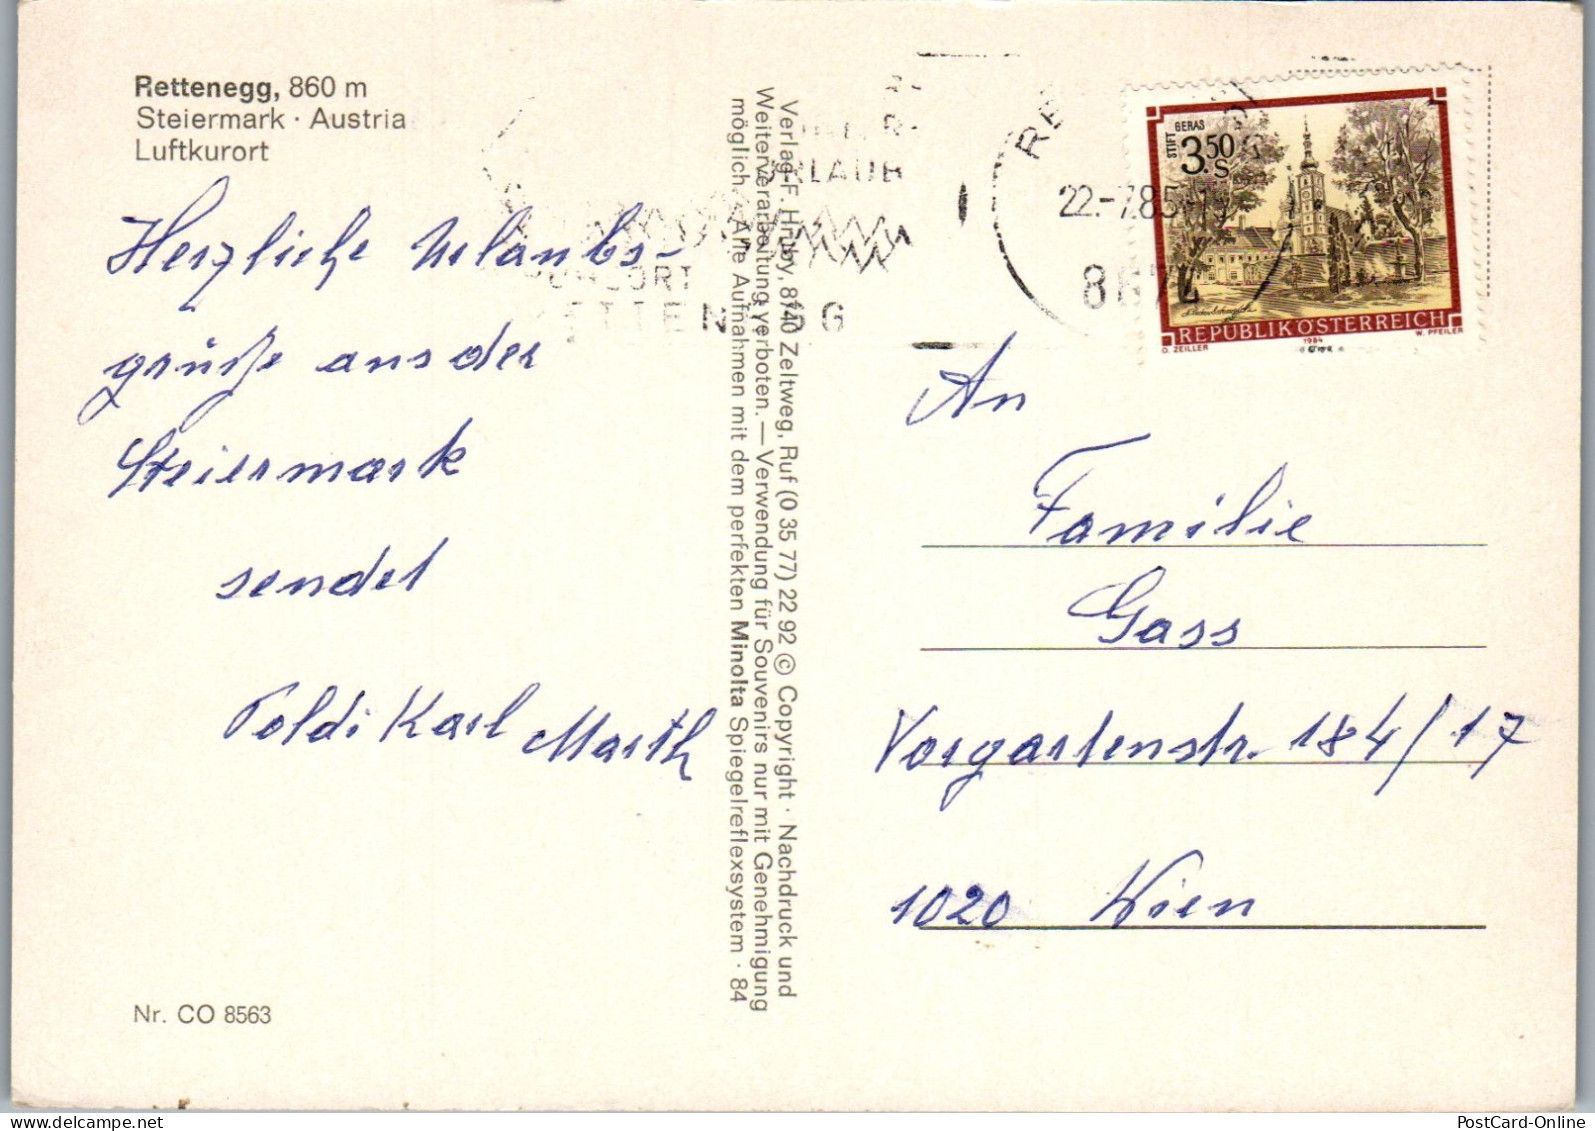 Rettenegg, 860 m
Steiermark · Austria
Luftkurort
Herzliche Urlaubs-
grüße aus der
Steiermark
sendet
Poldi Karl Marth
Nr. CO 8563
Verlag F. Hruby, 8740 Zeltweg, Ruf (0 35 77) 22 92 © Copyright · Nachdruck und
Weiterverarbeitung verboten. — Verwendung für Souvenirs nur mit Genehmigung
möglich. Alle Aufnahmen mit dem perfekten Minolta Spiegelreflexsystem · 84
URLAUB
22.-7.85
8674
STIFT GERAS
3.50 S
REPUBLIK ÖSTERREICH
O. ZEILLER 1984 W. PFEILER
An
Familie
Gass
Vorgartenstr. 184/17
1020 Wien
PostCard-Online